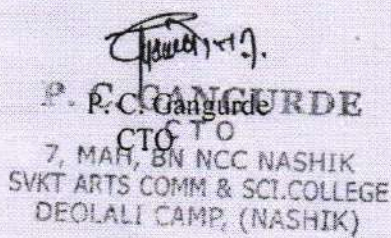 P. C. GANGURDE
P. C. Gangurde
CTO
CTO
7, MAH, BN NCC NASHIK
SVKT ARTS COMM & SCI.COLLEGE
DEOLALI CAMP, (NASHIK)